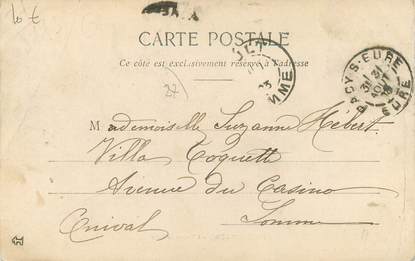 CARTE POSTALE
Ce côté est exclusivement réservé à l'adresse
PACY-S-EURE
31 AOUT 03
EURE
Mademoiselle Suzanne Hebert
Villa Coquette
Avenue du Casino
Onival Somme